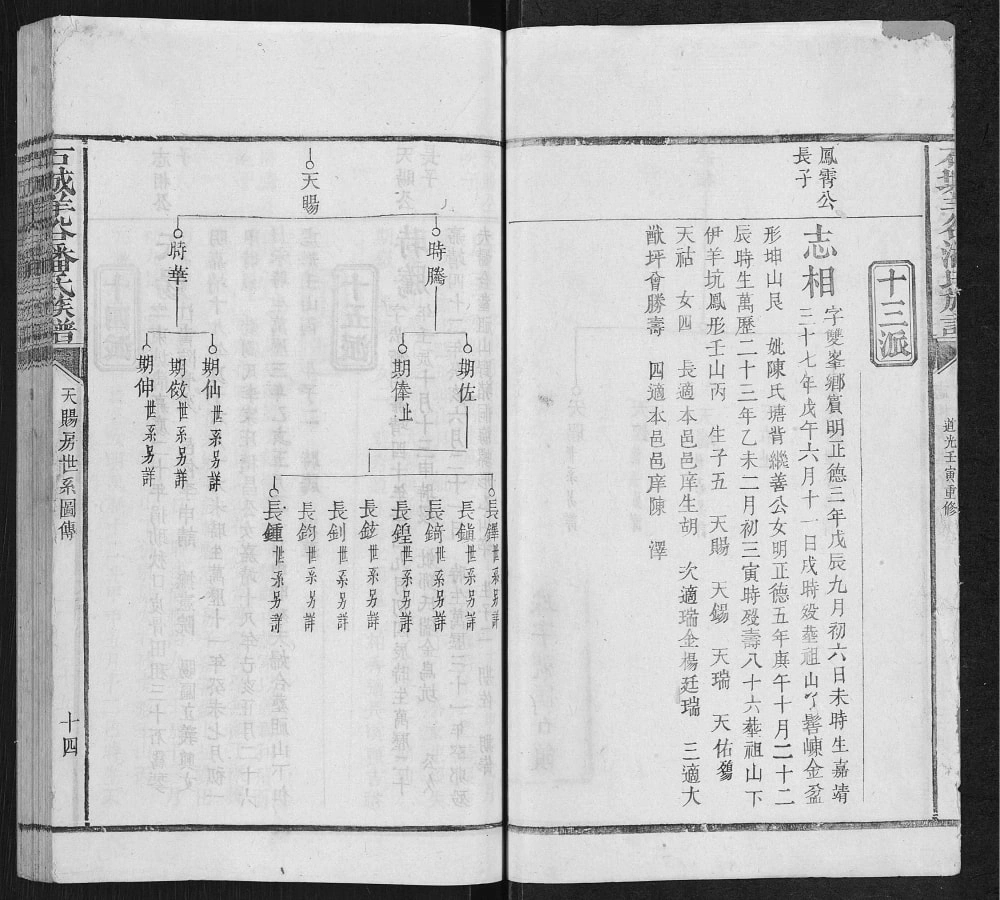 道光壬寅重修
十三派
鳳霄公
長子
志相
字雙峯鄉賓明正德三年戊辰九月初六日未時生嘉靖
三十七年戊午六月十一日戌時歿塟祖山丫髻崠金盆
形坤山艮 妣陳氏塘背繼善公女明正德五年庚午十月二十二
辰時生萬歷二十三年乙未二月初三寅時歿壽八十六塟祖山下
伊羊坑鳳形壬山丙 生子五 天賜 天錫 天瑞 天佑
天祜 女四 長適本邑邑庠生胡 次適瑞金楊廷瑞 三適大
猷坪曾勝壽 四適本邑邑庠陳 澤
天賜
時騰
時華
期佐
期俸止
期仙世系另詳
期傚世系另詳
期伸世系另詳
長鐸世系另詳
長鎮世系另詳
長錡世系另詳
長鍠世系另詳
長鉉世系另詳
長釗世系另詳
長鈞世系另詳
長鍾世系另詳
石城羊谷潘氏族譜
天賜房世系圖傳
十四